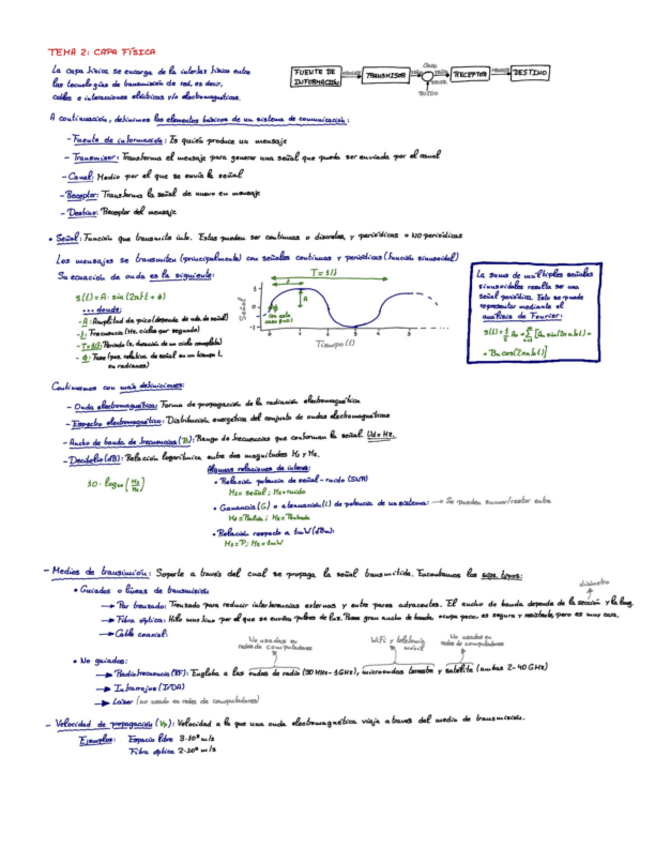 TEMA 2: CAPA FÍSICA
La capa física se encarga de la interfaz física entre
las tecnologías de transmisión de red, es decir,
cables e interacciones eléctricas y/o electromagnéticas.
FUENTE DE INFORMACIÓN
TRANSMISOR
CANAL
RUIDO
RECEPTOR
DESTINO
A continuación, definimos los elementos básicos de un sistema de comunicación:
- Fuente de información: Es quién produce un mensaje
- Transmisor: Transforma el mensaje para generar una señal que pueda ser enviada por el canal
- Canal: Medio por el que se envía la señal
- Receptor: Transforma la señal de nuevo en mensaje
- Destino: Receptor del mensaje
• Señal: Función que transmite info. Estas pueden ser continuas o discretas, y periódicas o NO periódicas
Los mensajes se transmiten (principalmente) con señales continuas y periódicas (función sinusoidal)
Su ecuación de onda es la siguiente:
s(t) = A · sin(2πft + φ)
... donde:
- A: Amplitud de pico (depende de cada señal)
- f: Frecuencia (Hz, ciclos por segundo)
- T=1/f: Periodo (s, duración de un ciclo completo)
- φ: Fase (pos. relativa de señal en un tiempo t, en radianes)
T = 1/f
Señal
A
Tiempo (t)
La suma de múltiples señales
sinusoidales resulta ser una
señal periódica. Esto se puede
representar mediante el
análisis de Fourier:
Continuamos con más definiciones:
- Onda electromagnética: Forma de propagación de la radiación electromagnética
- Espectro electromagnético: Distribución energética del conjunto de ondas electromagnéticas
- Ancho de banda de frecuencias (B): Rango de frecuencias que conforman la señal. Ud = Hz.
- Decibelio (dB): Relación logarítmica entre dos magnitudes M₁ y M₂.
10 · log₁₀
Algunas relaciones de interés:
• Relación potencia de señal-ruido (SNR)
M₁ = señal; M₂ = ruido
• Ganancia (G) o atenuación (L) de potencia de un sistema: → Se pueden sumar/restar entre
• Relación respecto a 1mW (dBm):
M₁ = P; M₂ = 1mW
- Medios de transmisión: Soporte a través del cual se propaga la señal transmitida. Encontramos los sigs. tipos:
• Guiados o líneas de transmisión
diámetro
→ Par trenzado: Trenzado para reducir interferencias externas y entre pares adyacentes. El ancho de banda depende de la sección y la long.
→ Fibra óptica: Hilo muy fino por el que se envían pulsos de luz. Posee gran ancho de banda, ocupa poco, es segura y resistente, pero es muy cara.
→ Cable coaxial:
No usadas en redes de computadores
WiFi y telefonía móvil
No usadas en redes de computadores
• No guiados:
→ Radiofrecuencia (RF): Engloba a las ondas de radio (30 MHz - 1GHz), microondas terrestre y satélite (ambas 2-40 GHz)
→ Infrarrojos (IrDA)
→ Láser (no usado en redes de computadores)
- Velocidad de propagación (Vp): Velocidad a la que una onda electromagnética viaja a través del medio de transmisión.
Ejemplos: Espacio libre 3·10⁸ m/s
Fibra óptica 2·10⁸ m/s